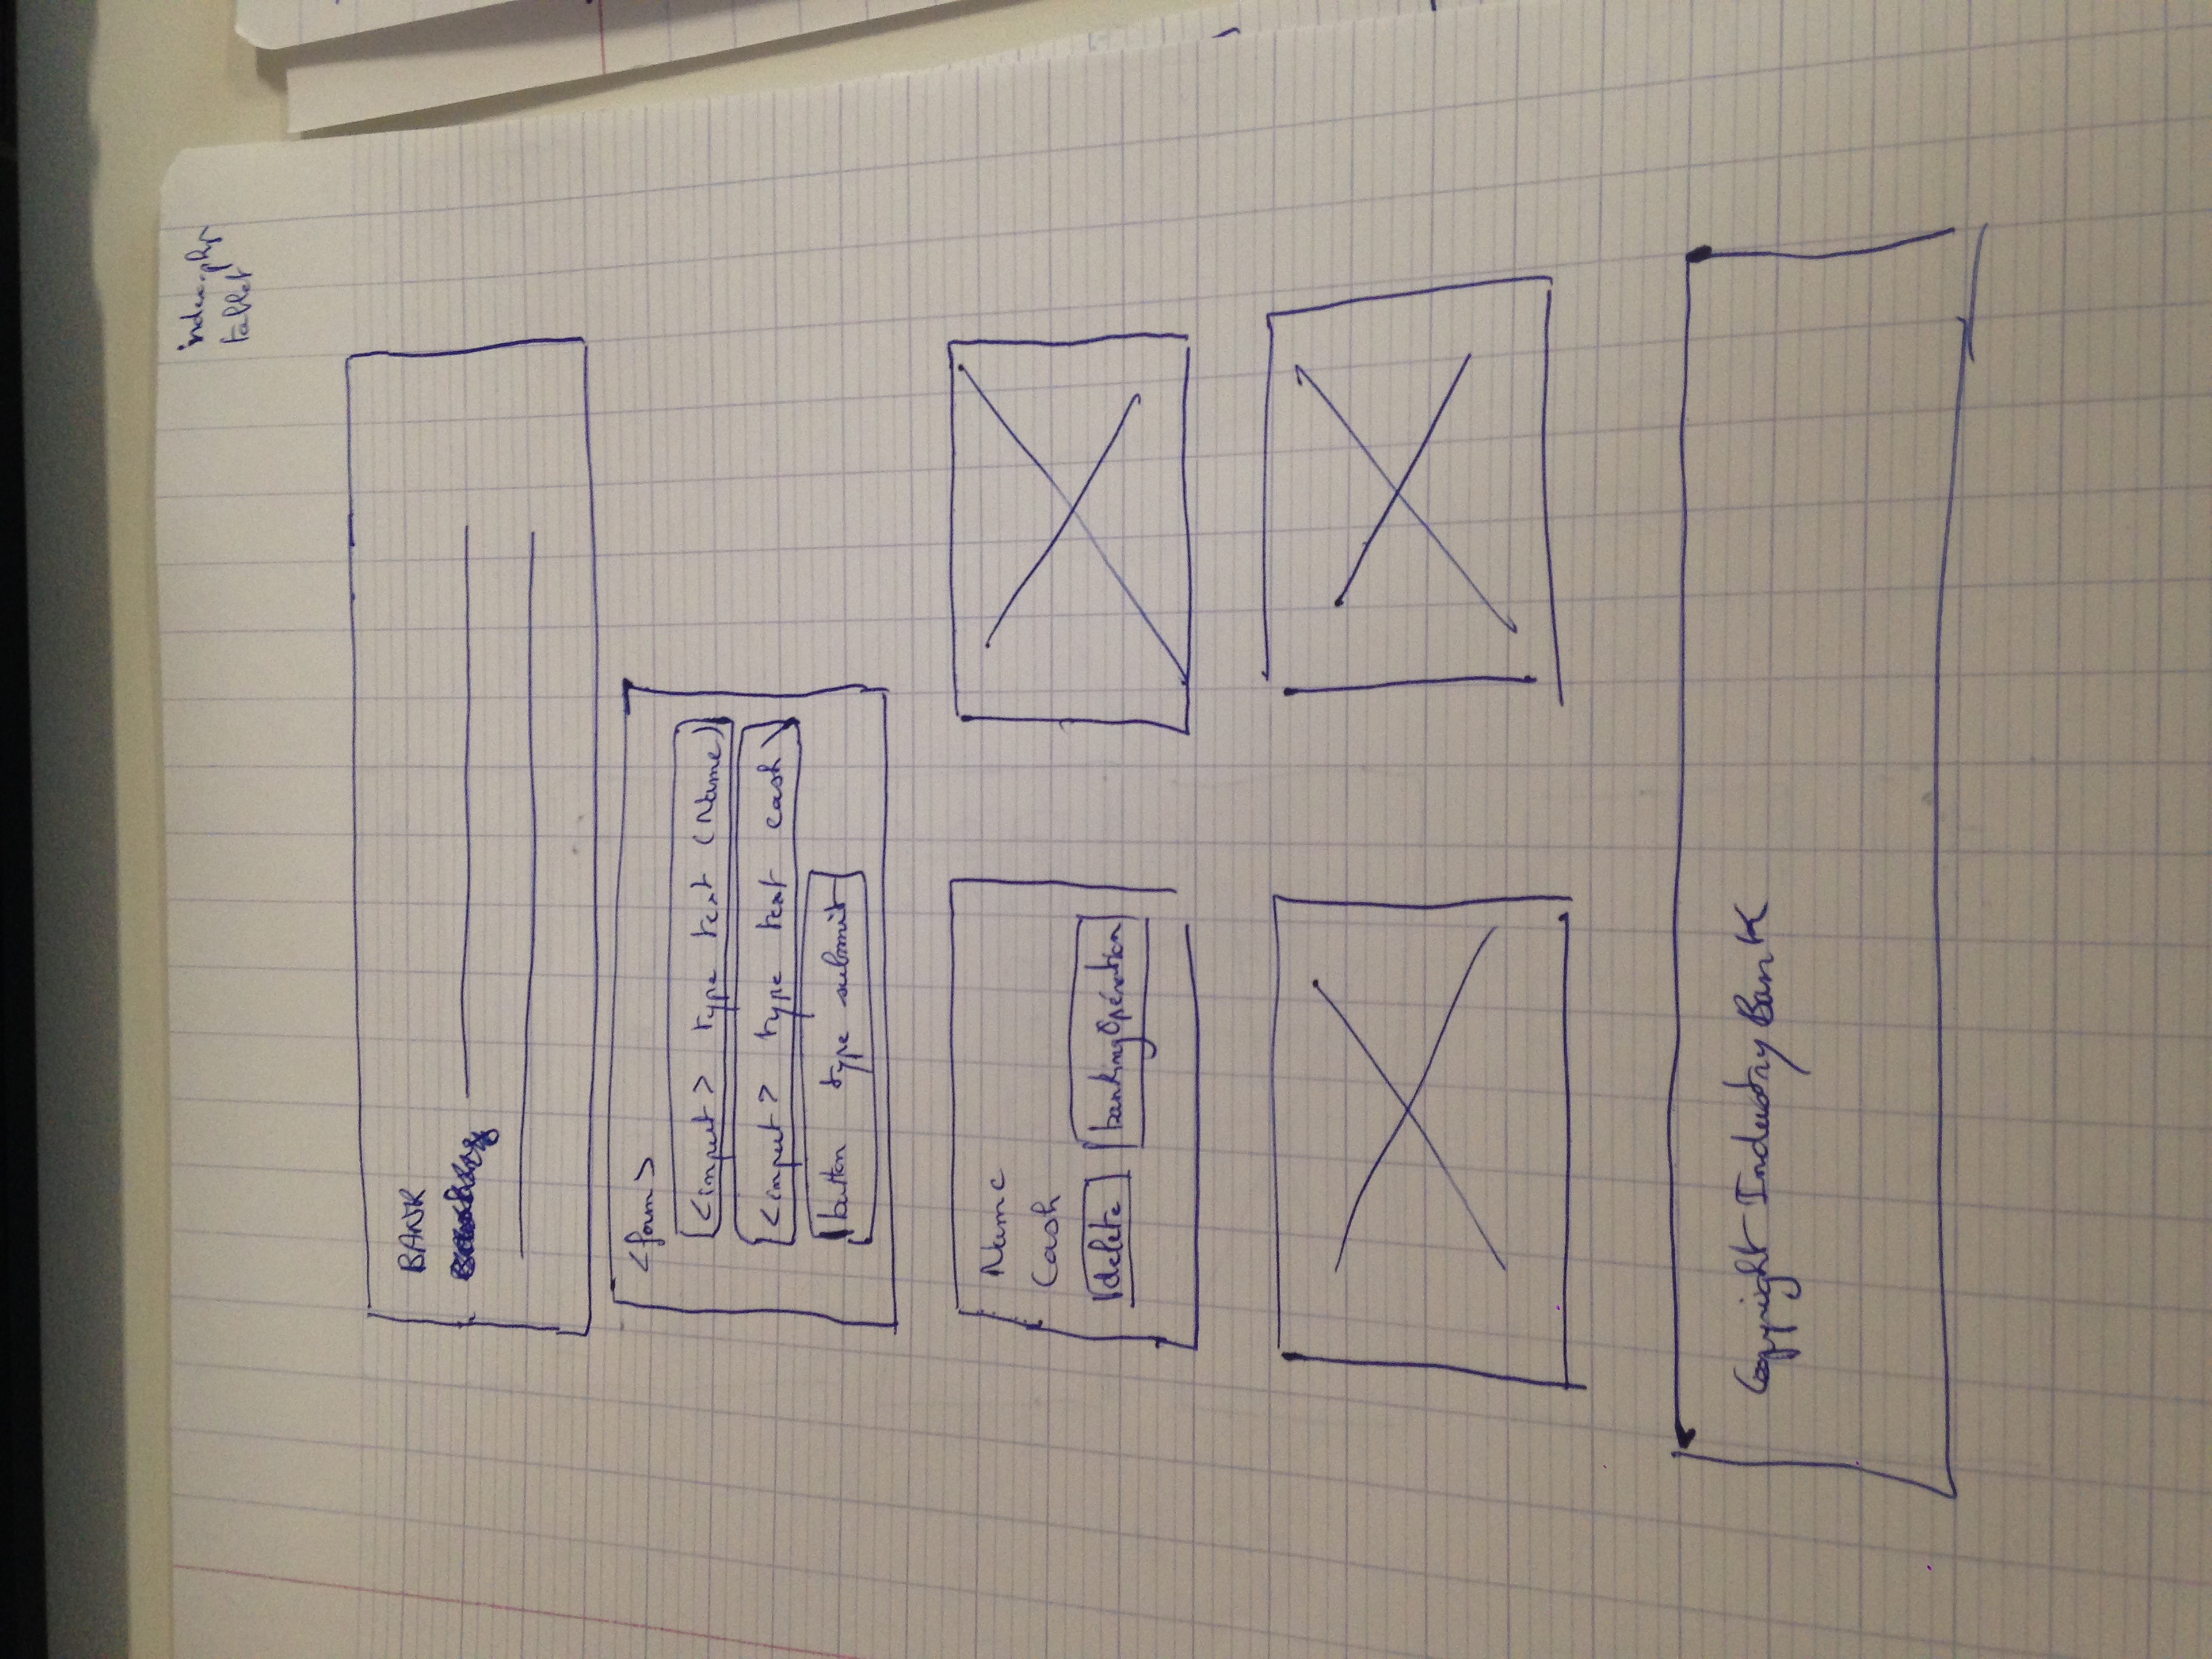 index.php
tablet
BANK
<form>
<input> type text (Name)
<input> type text cash
button type submit
Name
Cash
delete bankingOpération
Copyright Industry Bank